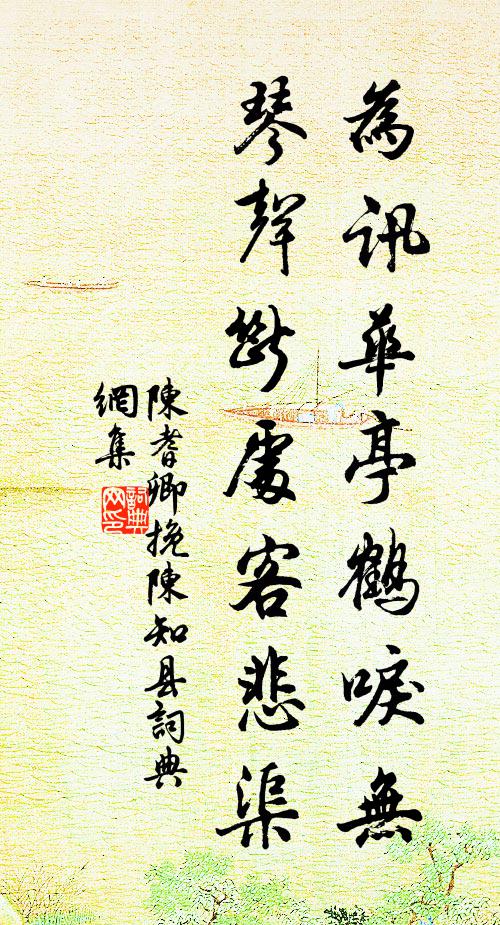 為訊華亭鶴唳無
琴聲斷處客悲渠
陳耆卿挽陳知县詞典
網集
詞典
网印